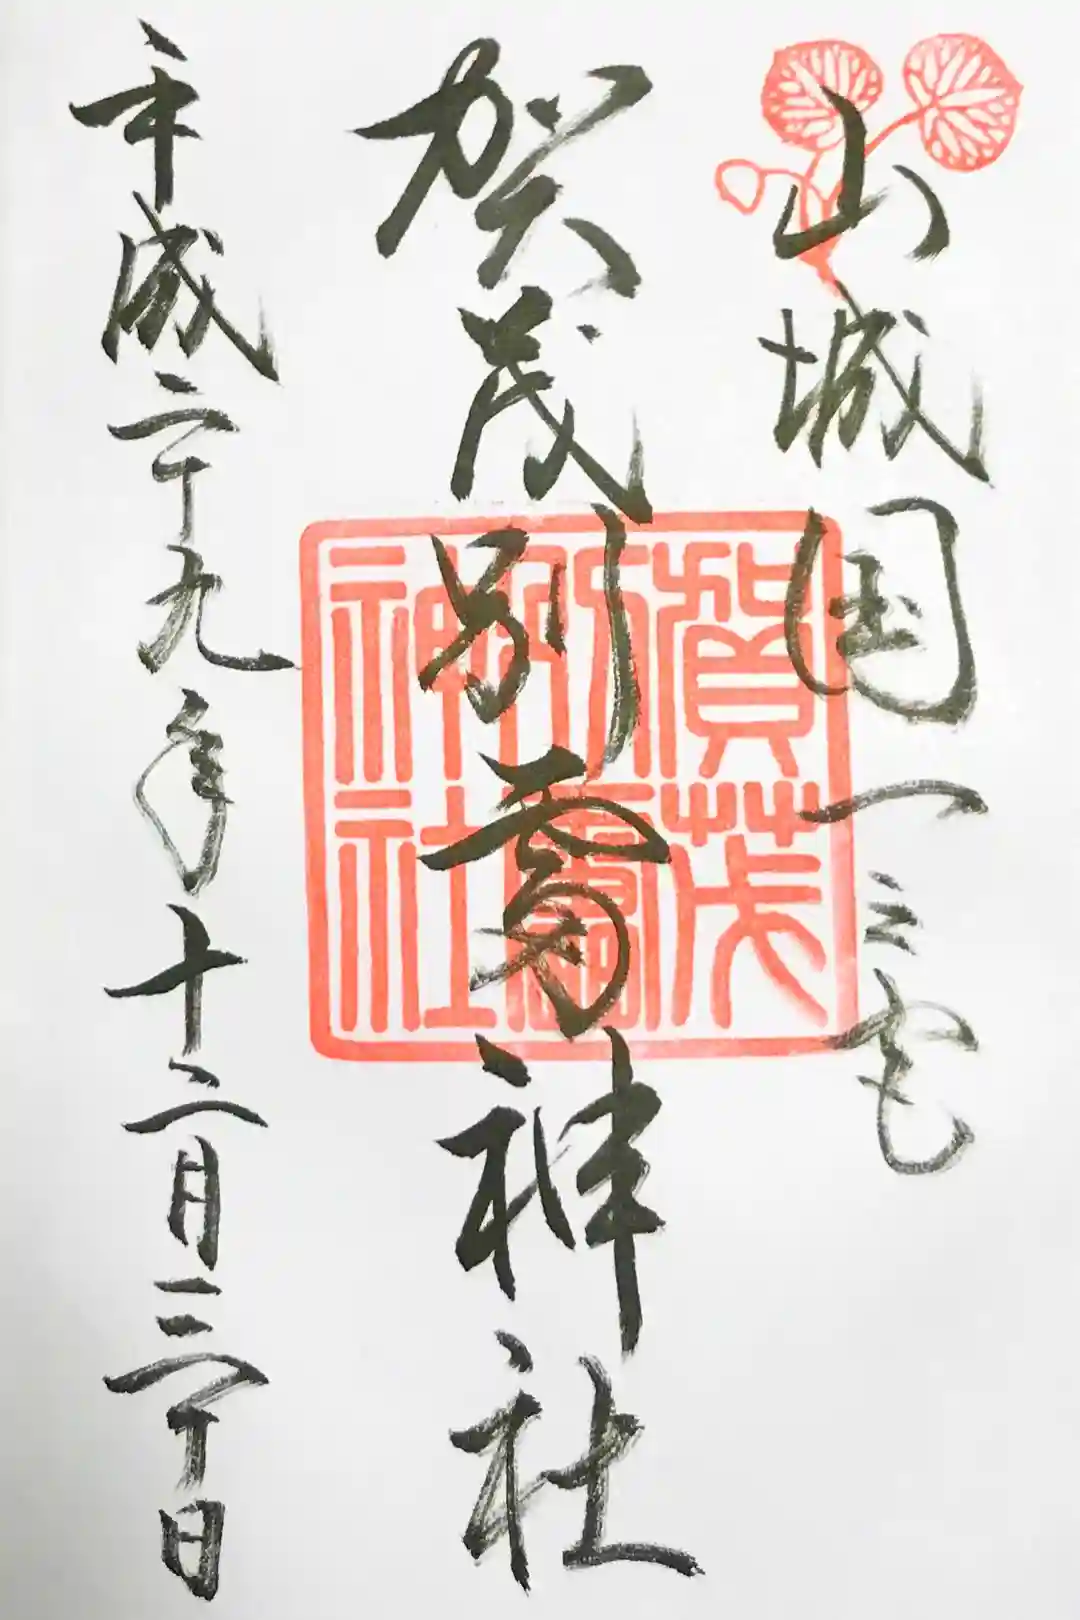 山城国一之宮
賀茂別雷神社
平成二十九年十二月三十日
賀茂
別雷
神社